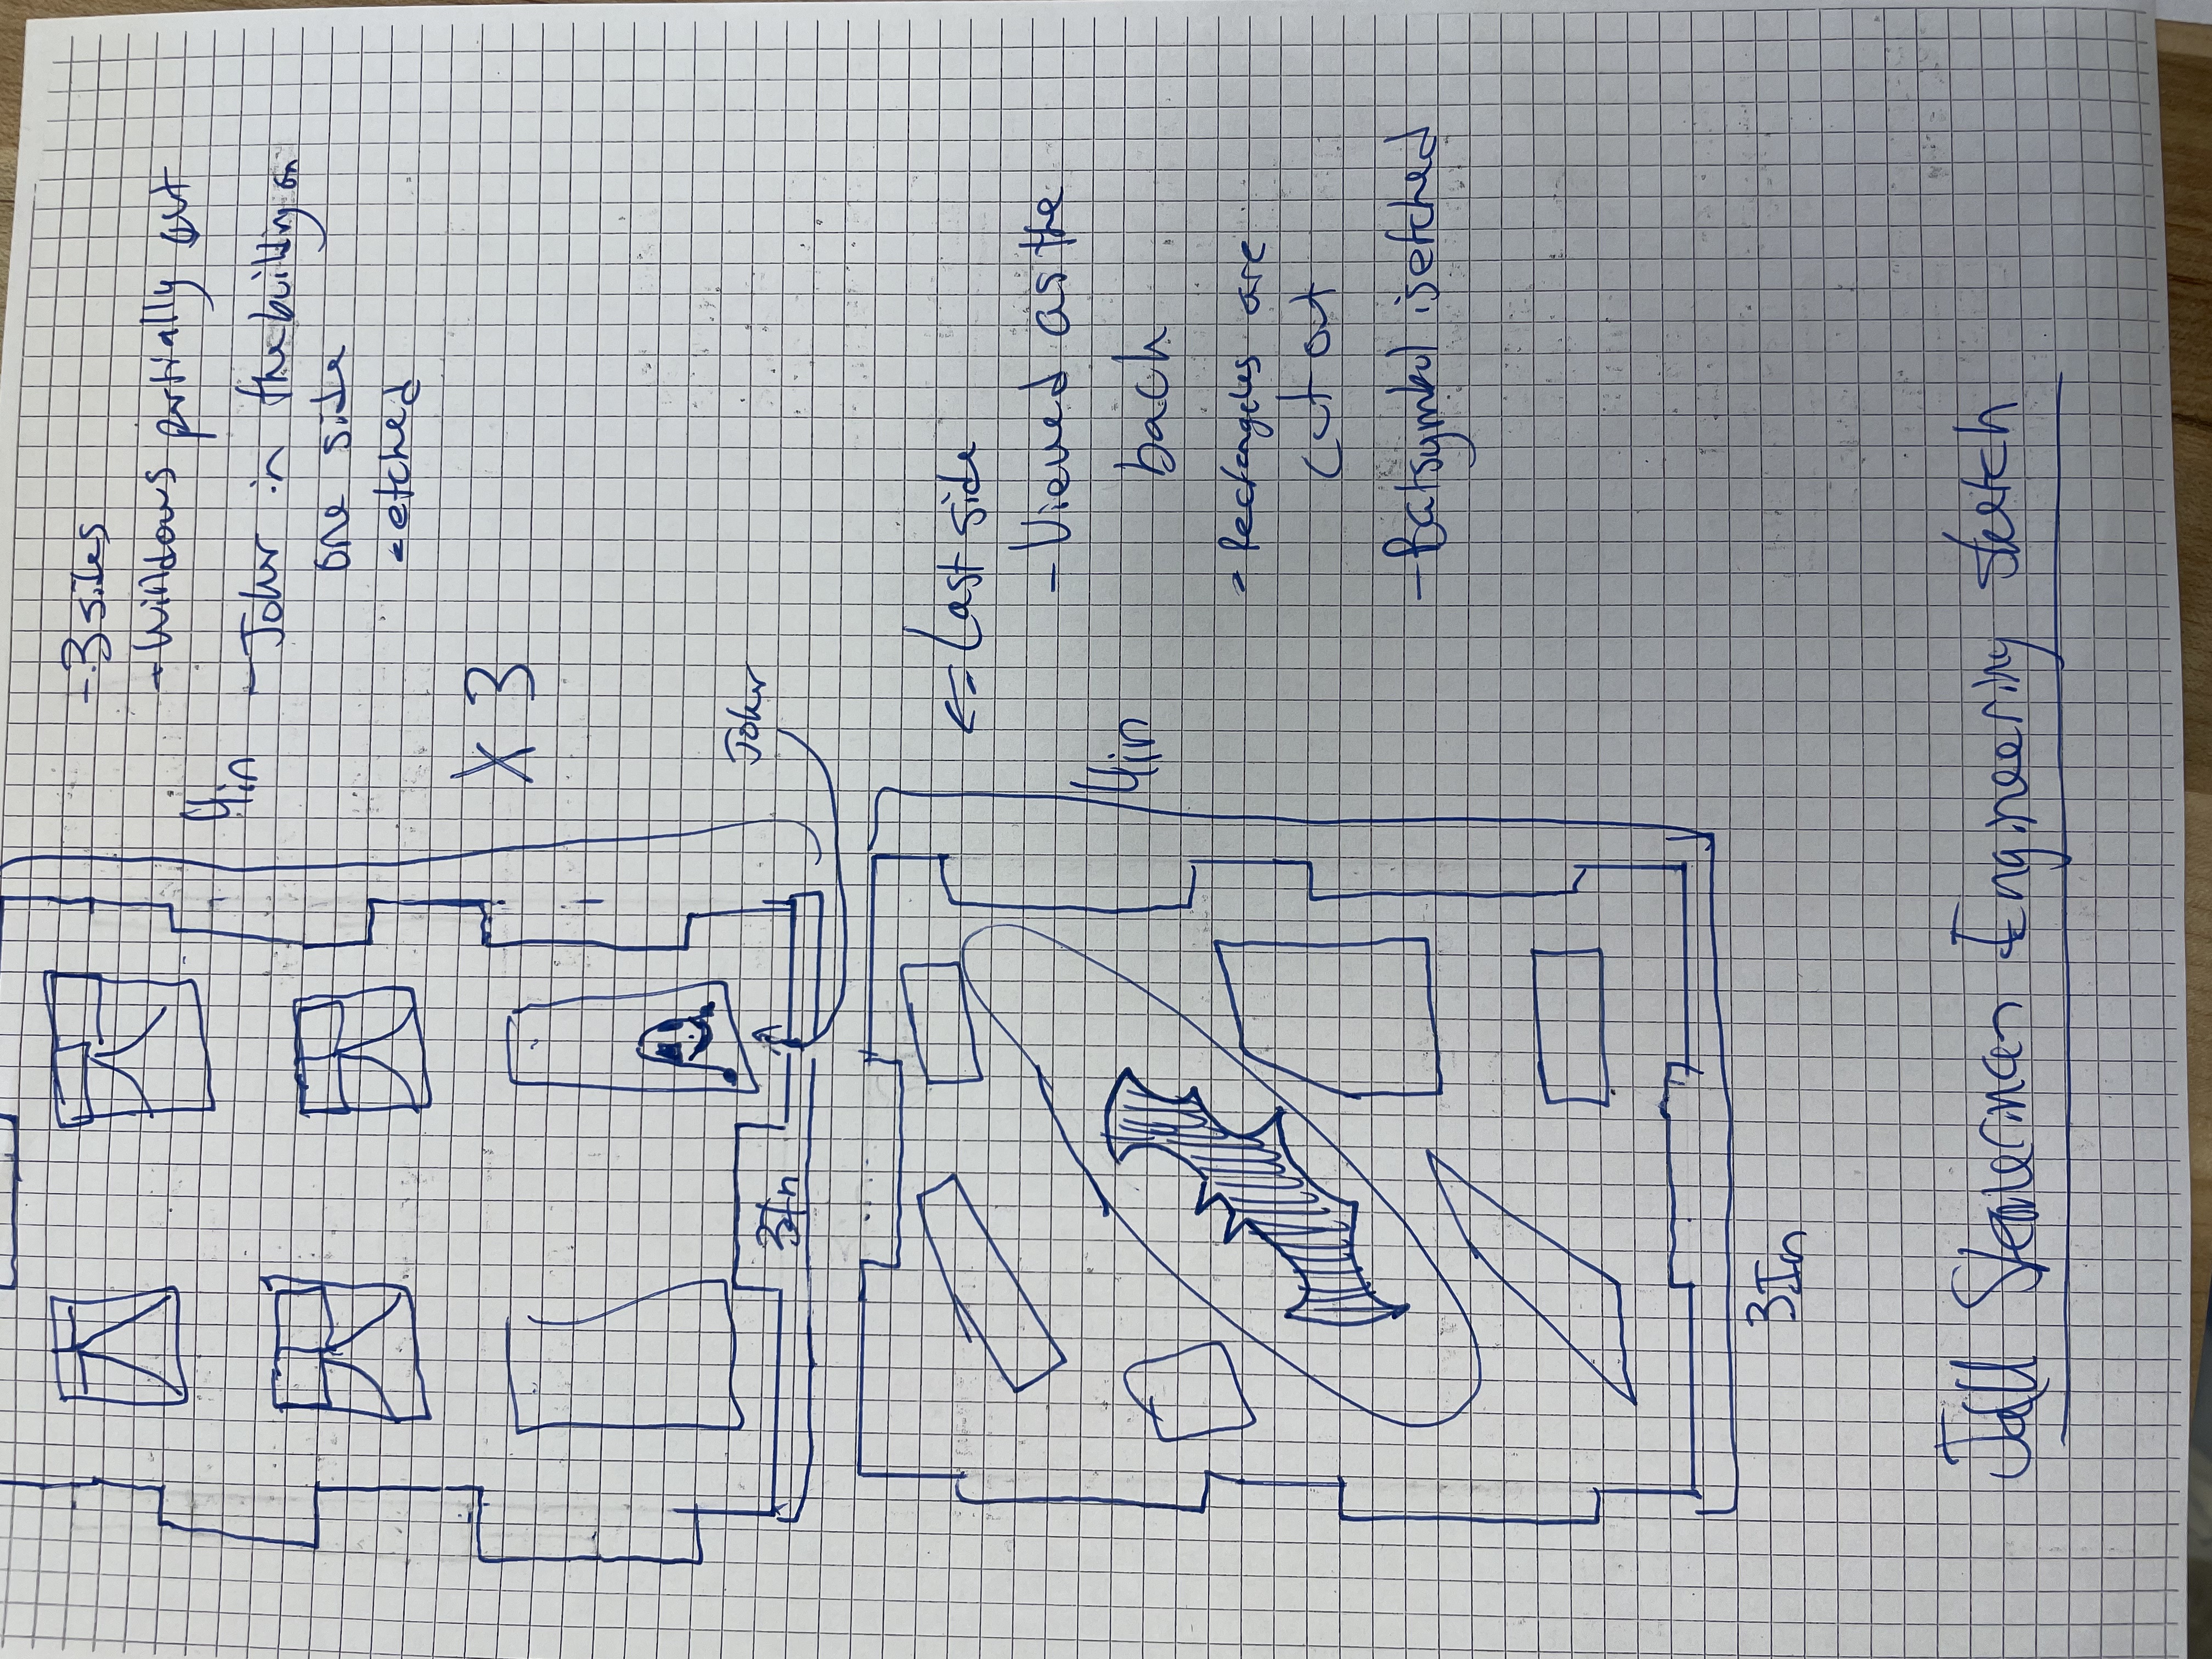 - 3 sides
- Windows partially cut
4in
- Joker in the building on
one side
- etched
X 3
3In
Joker
<= Last side
- Viewed as the
4in
back
- Rectangles are
cut out
- Batsymbol is etched
3In
Engineering Sketch